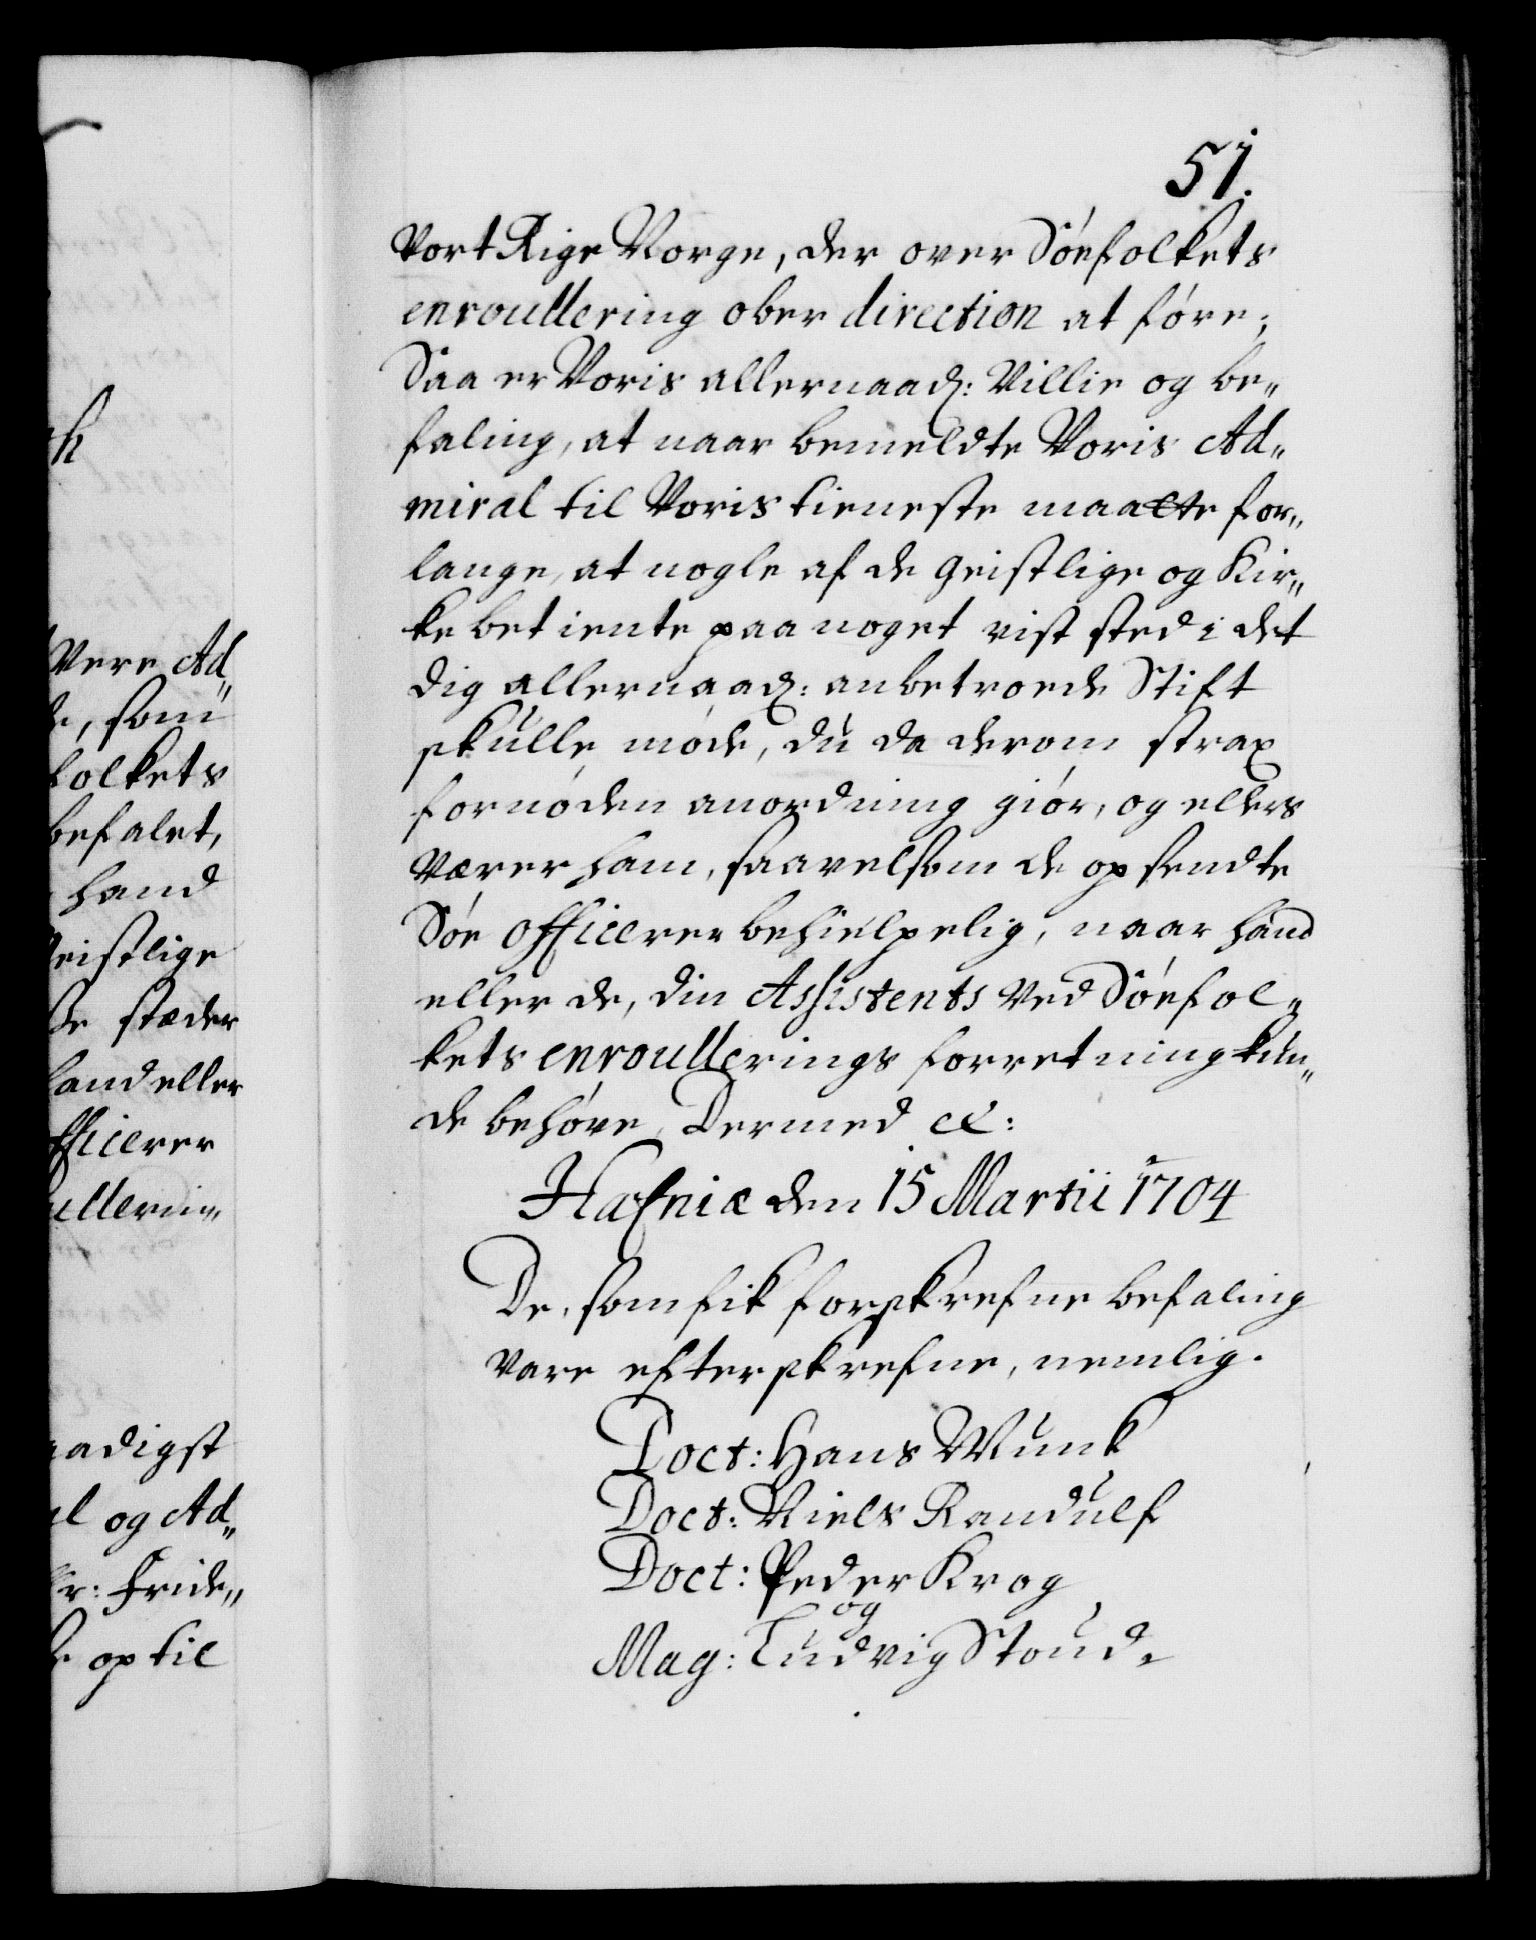 51.
Vort Rige Norge, der over Söefolkets
enroullering ober direction at före;
Saa er Voris allernaad: Villie og be„
faling, at naar bemeldte Voris Ad„
miral til Voris tieneste maatte for„
lange, at nogle af de geistlige og Kir„
ke betiente paa noget vist sted i det
dig allernaad: anbetroede Stift
skulle møde, du da derom strax
fornøden anordning giör, og ellers
værer ham, saavelsom de op sendte
Söe officerer behielpelig, naar hand
eller de, din Assistents ved Söefol„
kets enroullerings forretning kun„
de behøve, Dermed etc:
Hafniæ den 15 Martii 1704
De, som fik forskrefne befaling
vare efterskrefne, nemlig.
Doct: Hans Munk
Doct: Niels Randulf
Doct: Peder Krog
og
Mag: Ludvig Stoud
Vere Ad„
som
folkets
befalet,
hand
geistlige
stæder
hand eller
officerer
ullerin„
naadigst
og Ad„
Fride„
op til